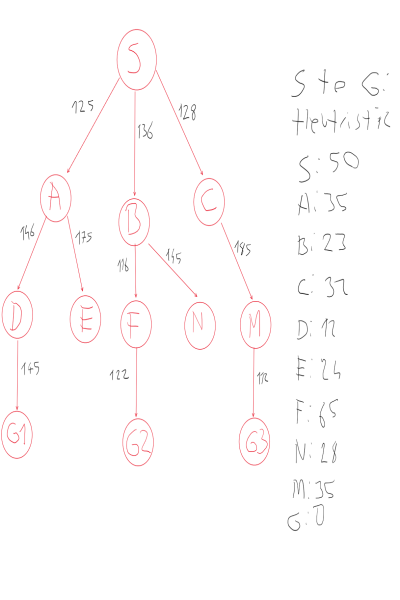 S
125
136
128
A
B
C
146
175
116
145
185
D
E
F
N
M
145
122
112
G1
G2
G3
S to G:
Heuristic
S: 50
A: 35
B: 23
C: 32
D: 12
E: 24
F: 65
N: 28
M: 35
G: 0